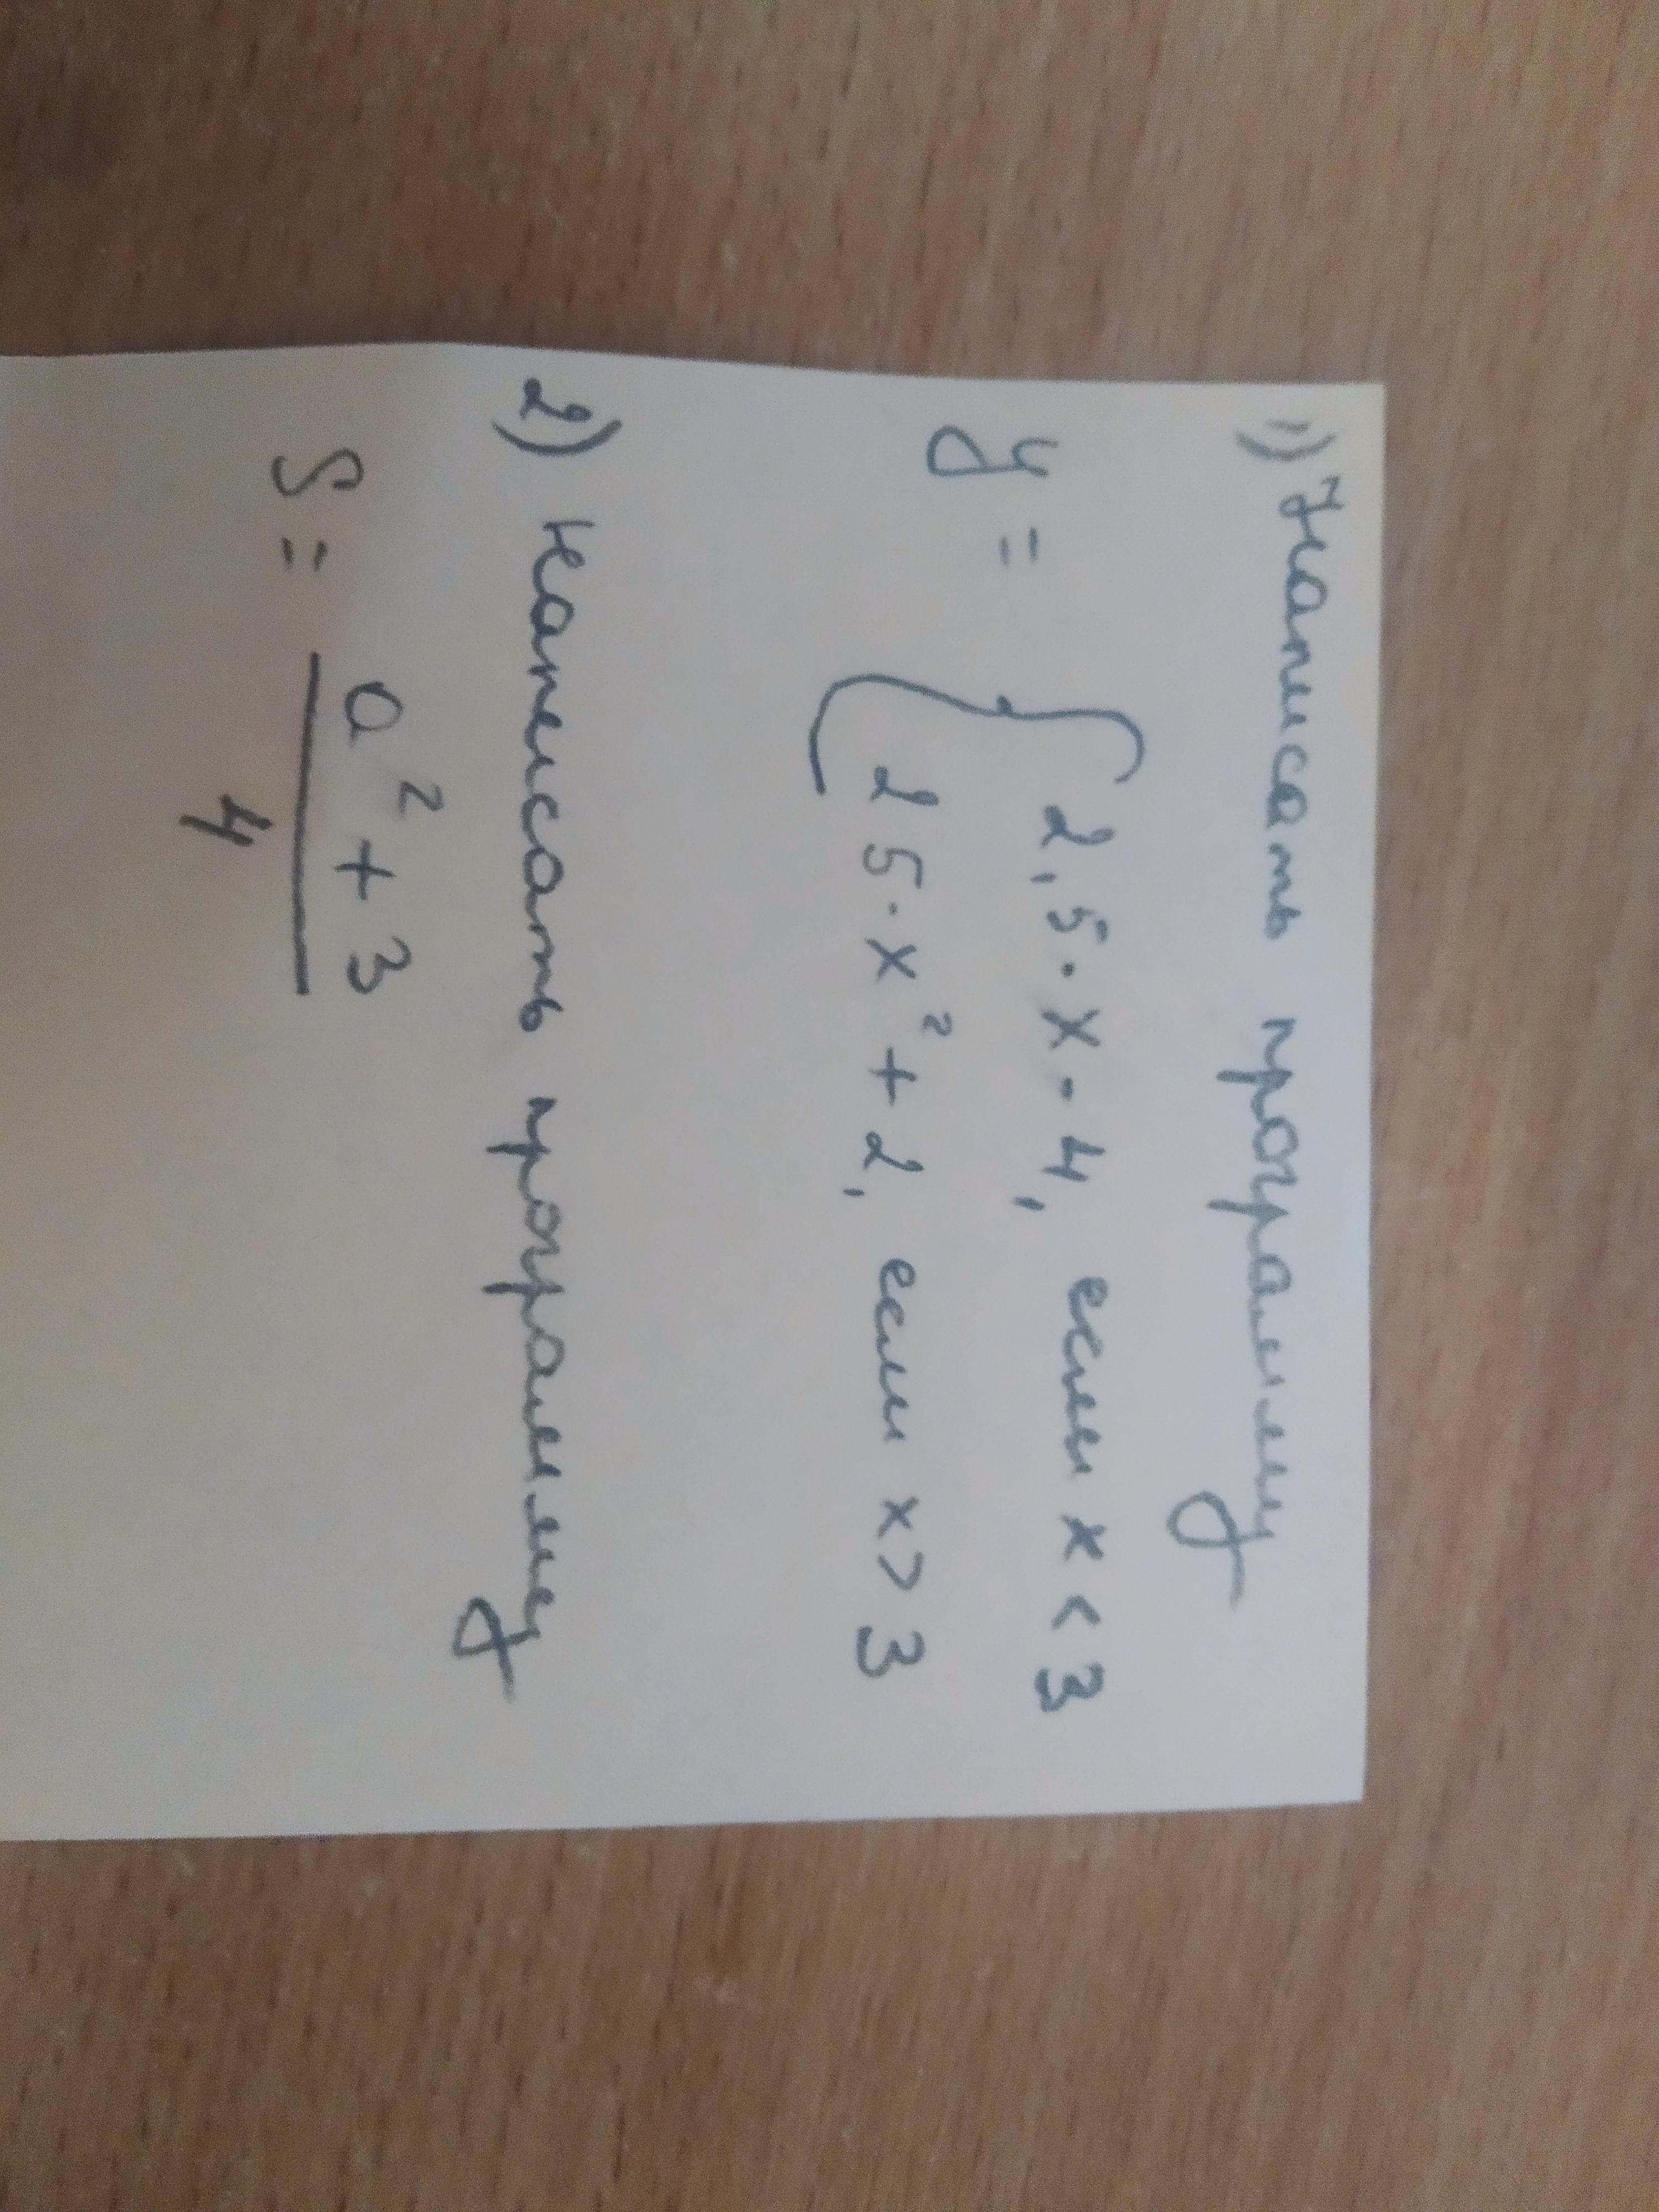 1) Написать программу
y =
2,5 · x - 4, если x < 3
25 · x² + 2, если x > 3
2) Написать программу
S = a² + 3
4